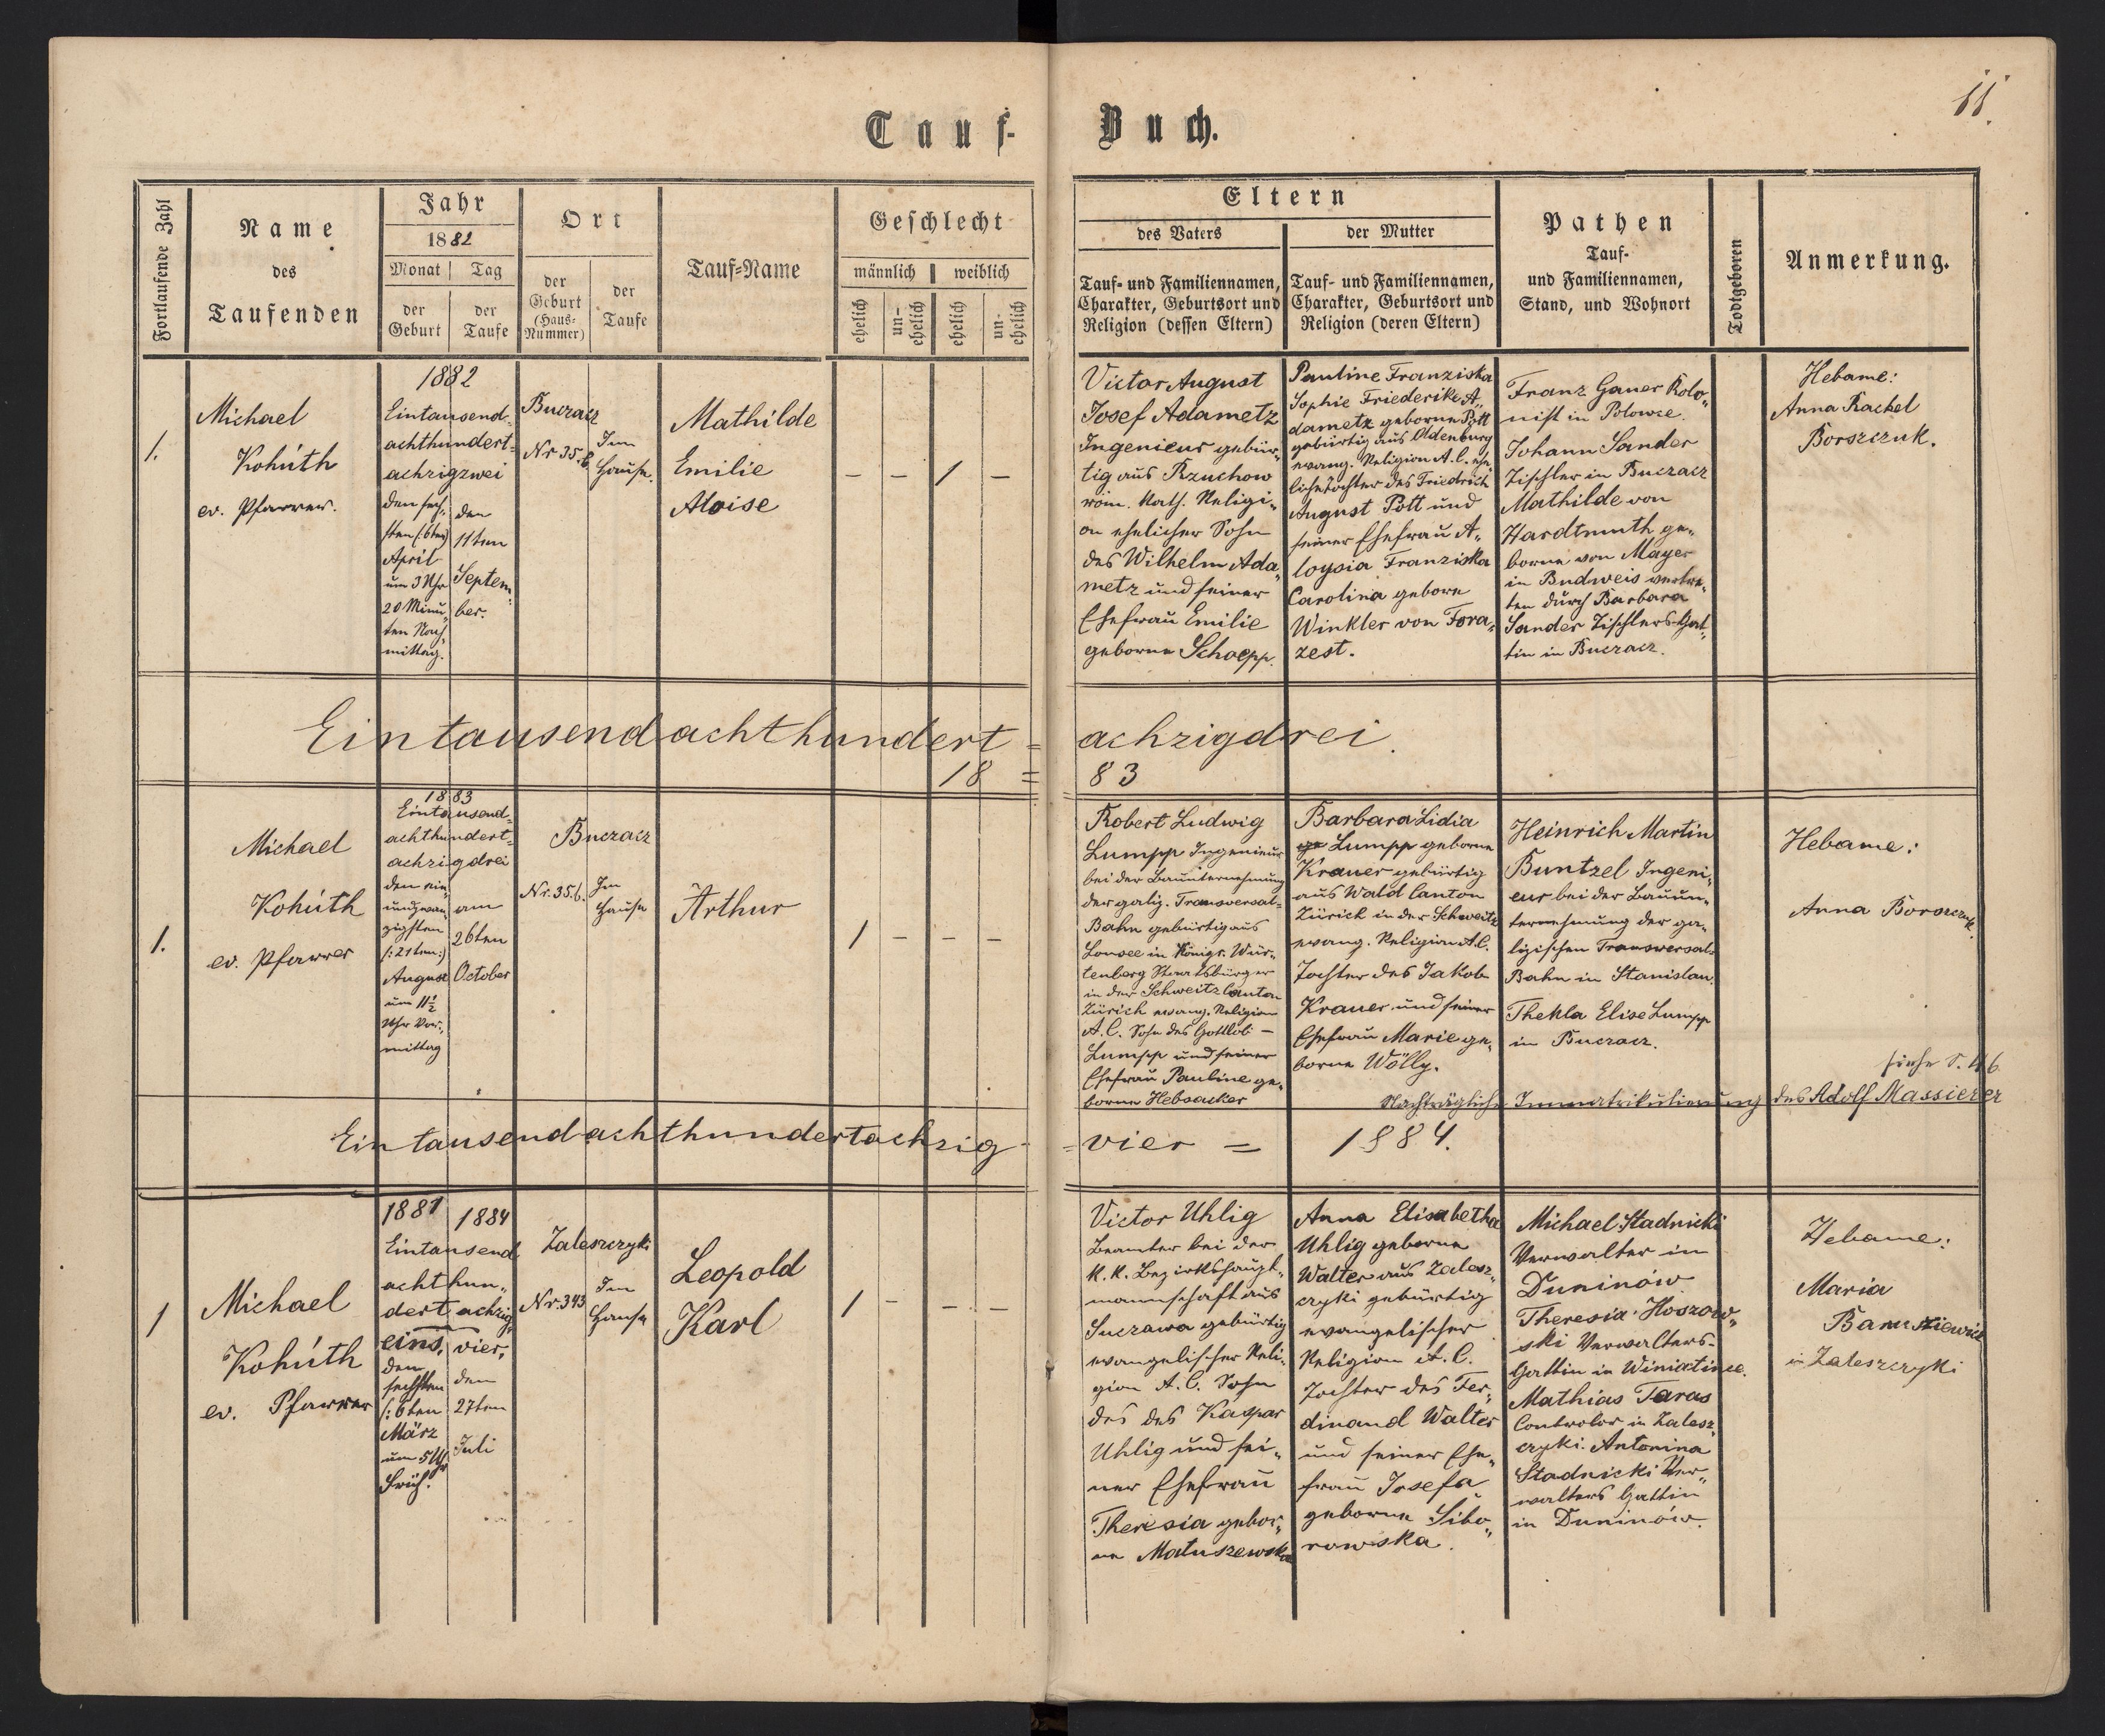 11.
Tauf-Buch.
Fortlaufende Zahl
Name
des
Taufenden
Jahr
1882
Monat
Tag
der
Geburt
der
Taufe
Ort
der
Geburt
(Haus-
Nummer)
der
Taufe
Tauf-Name
Geschlecht
männlich
weiblich
ehelich
un-
ehelich
ehelich
un-
ehelich
Eltern
des Vaters
der Mutter
Tauf- und Familiennamen,
Charakter, Geburtsort und
Religion (dessen Eltern)
Tauf- und Familiennamen,
Charakter, Geburtsort und
Religion (deren Eltern)
Pathen
Tauf-
und Familiennamen,
Stand, und Wohnort
Todtgeboren
Anmerkung.
1.
Michael
Kohúth
ev. Pfarrer.
1882
Eintausend-
achthundert-
achzigzwei
den sech-
sten (:6ten)
April
um 3 Uhr
20 Minu-
ten Nach-
mittag.
den
11ten
Septem-
ber.
Buczacz
Nr 35.b.
Im
Hause.
Mathilde
Emilie
Aloise
– – 1 –
Victor August
Josef Adametz
Ingenieur gebür-
tig aus Rzuchow
röm. Kath. Religi-
on ehelicher Sohn
des Wilhelm Ada-
metz und seiner
Ehefrau Emilie
geborne Schoepp.
Pauline Franziska
Sophie Friederike A-
dametz geborne Pott
gebürtig aus Oldenburg
evang. Religion A.C. ehe-
liche Tochter des Friedrich
August Pott und
seiner Ehefrau A-
loysia Franziska
Carolina geborne
Winkler von Fora-
zest.
Franz Gauer Kolo-
nist in Polowce.
Johann Sander
Tischler in Buczacz
Mathilde von
Hardtmuth ge-
borne von Mayer
in Budweis vertre-
ten durch Barbara
Sander Tischlers-Gat-
tin in Buczacz.
Hebame:
Anna Rachel
Borszczuk.
Eintausendachthundert = achzigdrei.
18 = 83
1.
Michael
Kohúth
ev. Pfarrer
1883
Eintausend-
achthundert-
achzigdrei
den ein-
undzwan-
zigsten
(:21ten:)
August
um 11½
Uhr Vor-
mittag
am
26ten
October
Buczacz
Nr. 35.b.
Im
Hause
Arthur
1 – – –
Robert Ludwig
Lumpp Ingenieur
bei der Bauunternehmung
der galiz. Transversal-
Bahn gebürtig aus
Lonsee in Königr. Wür-
tenberg Staatsbürger
in der Schweitz Canton
Zürich evang. Religion
A.C. Sohn des Gottlob –
Lumpp und seiner
Ehefrau Pauline ge-
borne Hebsacker
Barbara Lidia
ge Lumpp geborne
Krauer gebürtig
aus Wald Canton
Zürich in der Schweitz
evang. Religion A.C.
Tochter des Jakob
Krauer und seiner
Ehefrau Marie ge-
borne Wölly.
Heinrich Martin
Buntzel Ingeni-
eur bei der Bauun-
ternehmung der ga-
lizischen Transversal-
Bahn in Stanislau.
Thekla Elise Lumpp
in Buczacz.
Hebame:
Anna Borszczuk.
siehe S. 46
Nachträgliche Immatrikulierung des Adolf Massierer
Eintausendachthundertachzig = vier = 1884.
1
Michael
Kohúth
ev. Pfarrer
1881
1884
Eintausend
achthun-
dert achzig-
eins.
vier,
den
sechsten
(:6ten
März
um 5 Uhr
Früh.
den
27ten
Juli
Zaleszczyki
Nr. 343
Im
Hause
Leopold
Karl
1 – – –
Victor Uhlig
Beamter bei der
k.k. Bezirkshaupt-
mannschaft aus
Suczawa gebürtig
evangelischer Reli-
gion A.C. Sohn
des des Kaspar
Uhlig und sei-
ner Ehefrau
Theresia gebor-
ne Matuszewska
Anna Elisabetha
Uhlig geborne
Walter aus Zalesz-
czyki gebürtig
evangelischer
Religion A.C.
Tochter des Fer-
dinand Walter
und seiner Ehe-
frau Josefa
geborne Sibo-
rowska.
Michael Stadnicki
Verwalter in
Duninów
Theresia Hoszow-
ski Verwalters-
Gattin in Winiatince.
Mathias Taras
Controlor in Zalesz-
czyki. Antonina
Stadnicki Ver-
walters Gattin
in Duninów.
Hebame:
Maria
in Zaleszczyki